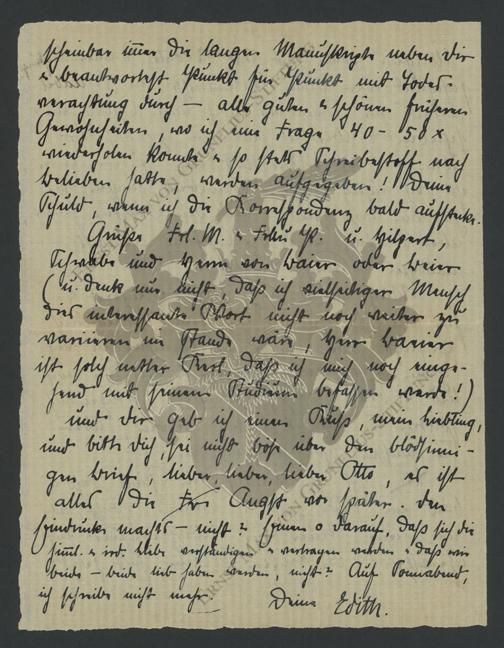 scheinbar immer die langen Manuskripte neben dir
u beantwortest Punkt für Punkt mit Todes-
verachtung durch – alle guten u schönen früheren
Gewohnheiten, wo ich eine Frage 40 – 50 x
wiederholen konnte u so stets Schreibestoff nach
belieben hatte, werden aufgegeben! Deine
Schuld, wenn ich die Korrespondenz bald aufstecke.
Grüße Frl. M. u Frau P. u. Hilgert,
Schwabe und Herrn von Baier oder Beier
(u. denk nur nicht, daß ich vielseitiger Mensch
dies interessante Wort nicht noch weiter zu
variieren im Stande wäre, Herr Baeier
ist solch netter Kerl, daß ich mich noch einge-
hend mit seinem Studium befassen werde!)
und dir geb ich einen Kuß, mein Liebling,
und bitte dich, sei nicht böse über den blödsinni-
gen Brief, lieber, lieber, lieber Otto, es ist
alles die Angst vor später. den
Eindruck machts – nicht? darauf, daß sich die
himml. u ird. Liebe verständigen u vertragen werden u daß wir
beide – beide lieb haben werden, nicht? Auf Sonnabend,
ich schreibe nicht mehr. Deine Edith.